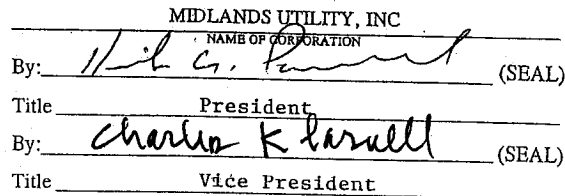 MIDLANDS UTILITY, INC
NAME OF CORPORATION
By: (SEAL)
Title President
By: Charlie K (SEAL)
Title Vice President